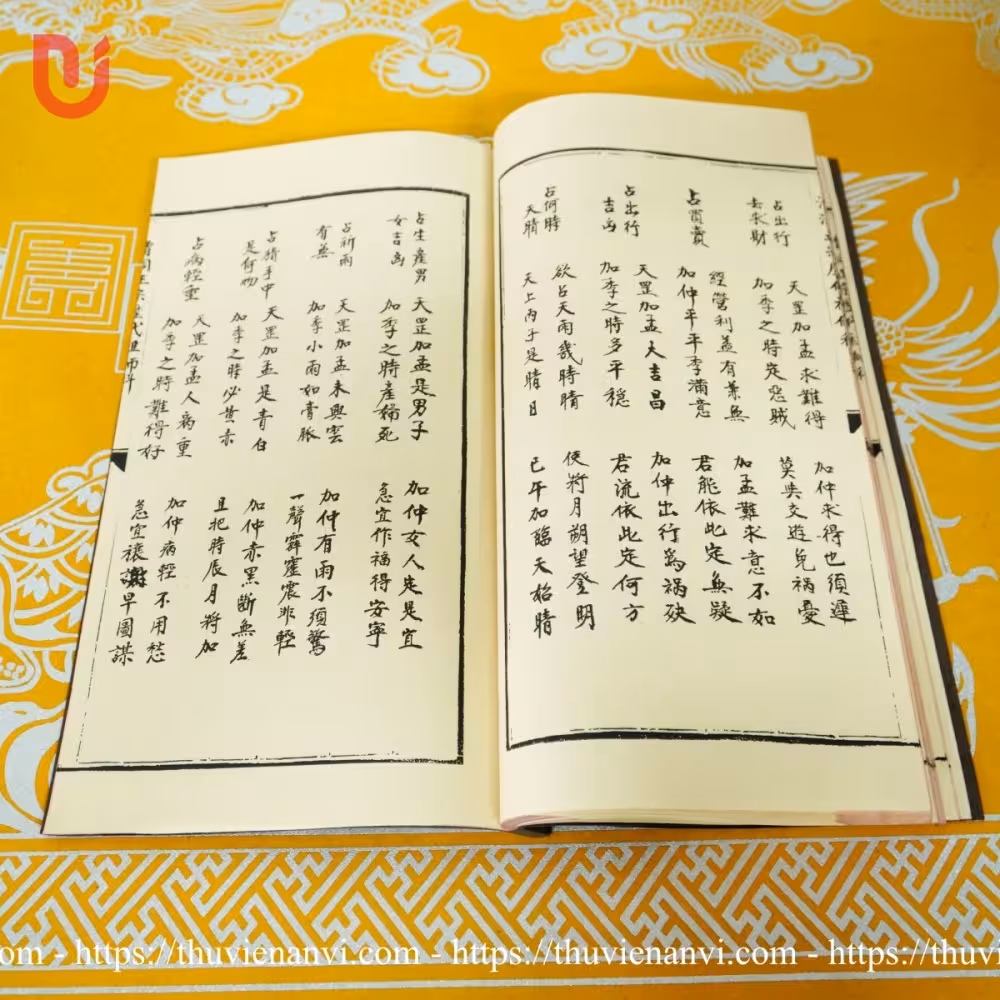 占出行
去求財
天罡加孟求難得 加仲求得也須遲
加季之時定惡賊 莫失交遊免禍憂
占買賣
經營利益有兼無 加孟難求意不如
加仲平平季滿意 君能依此定無疑
占出行
吉凶
天罡加孟大吉昌 加仲出行爲禍殃
加季之時多平穩 君流依此定何方
占何時
天晴
欲占天雨幾時晴 使將月朔望登明
天上丙子是晴日 巳午加臨天始晴
占生產男
女吉凶
天罡加孟是男子 加仲女人定是宜
加季之時產婦死 急宜作福得安寧
占祈雨
有無
天罡加孟未興雲 加仲有雨不須驚
加季小雨如膏脈 一聲霹靂震非輕
占猜手中
是何物
天罡加孟是青白 加仲赤黑斷無差
加季之時必黃赤 且把時辰月將加
占病輕重
天罡加孟人病重 加仲病輕不用愁
加季之時難得好 急宜禳謝早圖謀
.com - https://thuvienanvi.com - https://thuvienanvi.com - https://thuvi